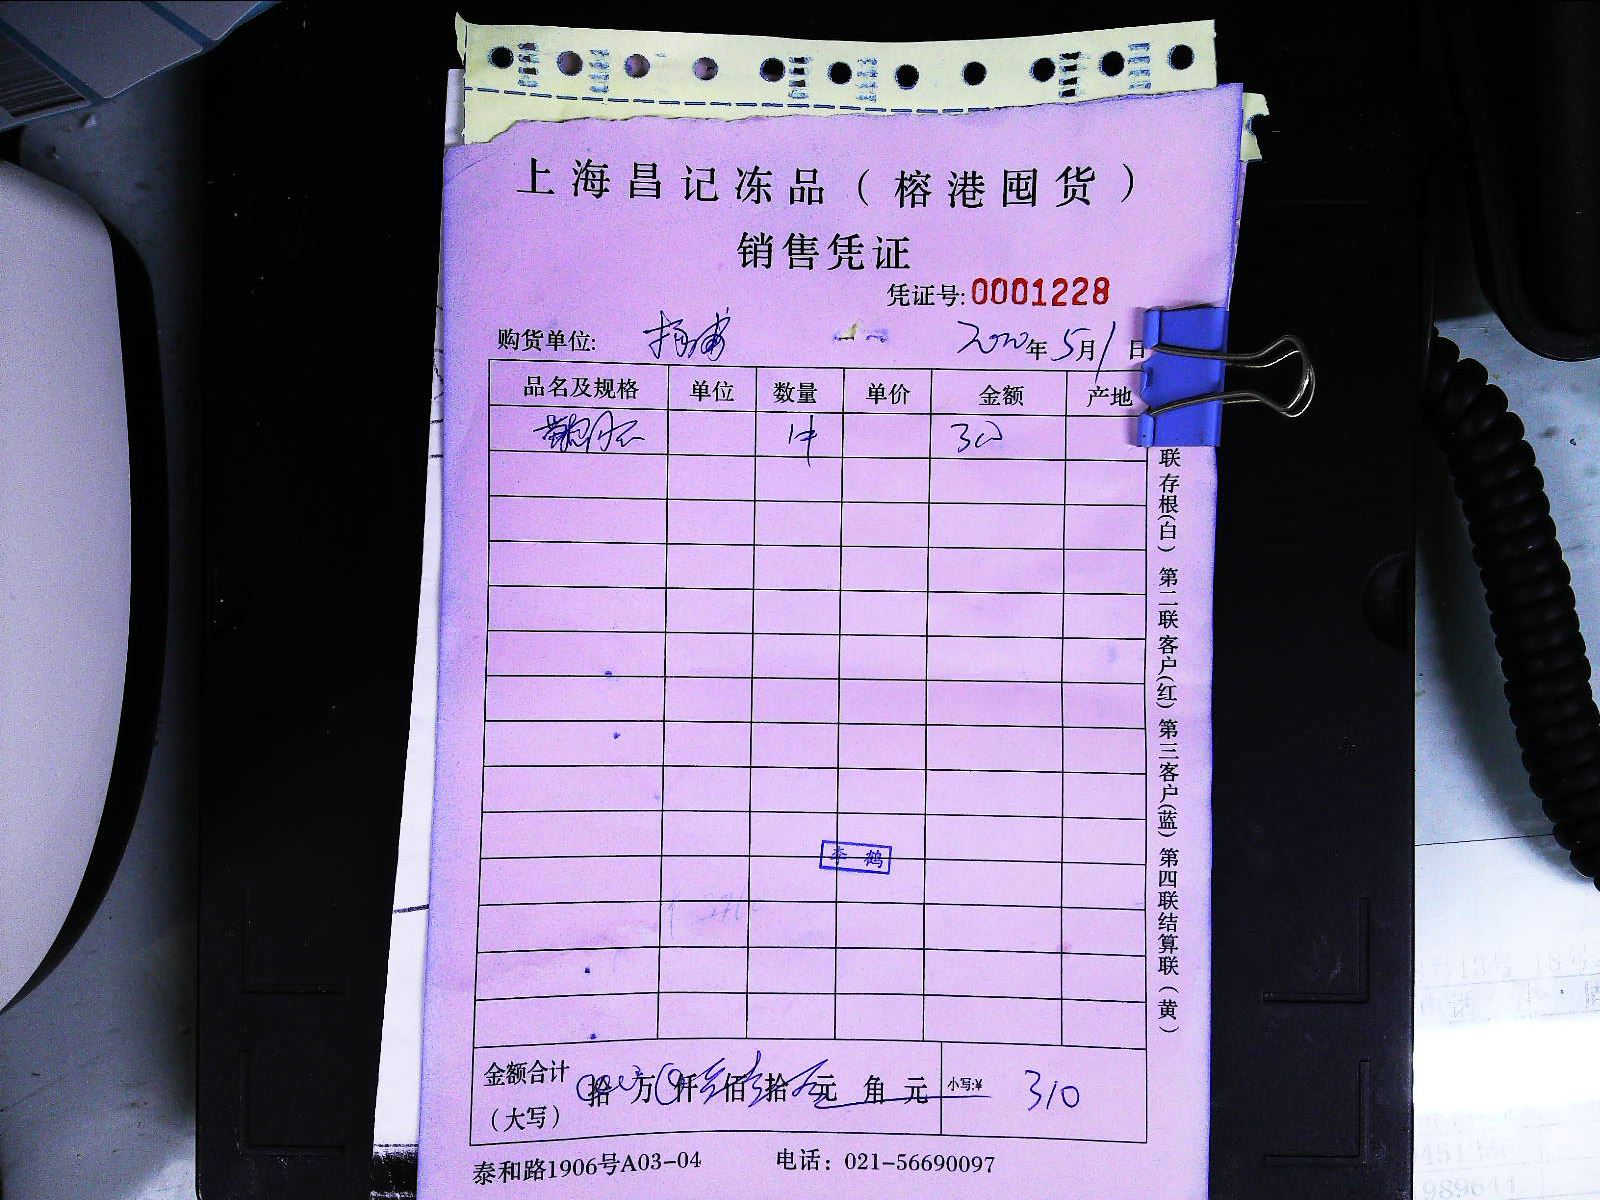 上海昌记冻品（榕港囤货）
销售凭证
凭证号:0001228
购货单位: 杨浦 2020年5月1日
品名及规格 单位 数量 单价 金额 产地
1件 310
联存根(白) 第二联客户(红) 第三客户(蓝) 第四联结算联(黄)
李鹤
金额合计（大写） 拾 万 仟 佰 拾 元 角 元 小写:¥ 310
泰和路1906号A03-04 电话：021-56690097